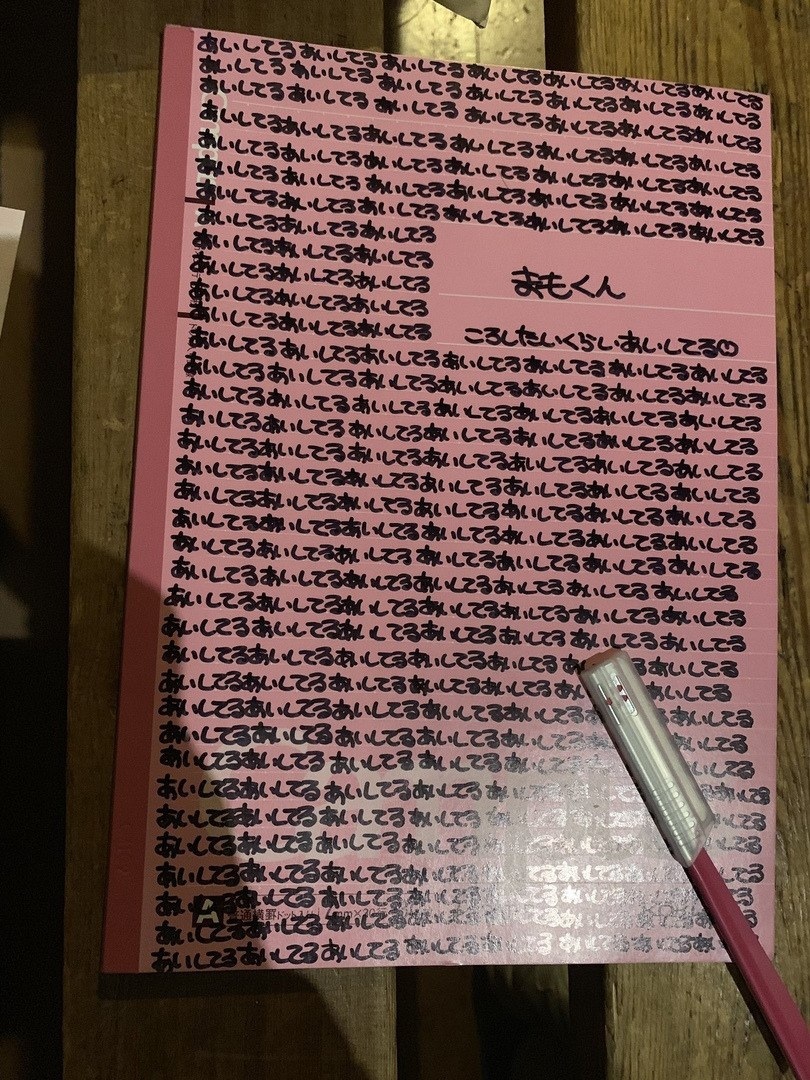 あいしてるあいしてるあいしてるあいしてるあいしてるあいしてるあいしてる
あいしてるあいしてるあいしてるあいしてるあいしてるあいしてるあいしてる
あいしてるあいしてるあいしてるあいしてるあいしてるあいしてるあいしてる
あいしてるあいしてるあいしてるあいしてるあいしてるあいしてるあいしてる
あいしてるあいしてるあいしてるあいしてるあいしてるあいしてるあいしてる
あいしてるあいしてるあいしてるあいしてるあいしてるあいしてるあいしてる
あいしてるあいしてるあいしてるあいしてるあいしてるあいしてるあいしてる
あいしてるあいしてるあいしてる
あいしてるあいしてるあいしてる
あいしてるあいしてるあいしてる
まもくん
あいしてるあいしてるあいしてる
あいしてるあいしてるあいしてる
ころしたいくらいあいしてる☺
あいしてるあいしてるあいしてるあいしてるあいしてるあいしてるあいしてる
あいしてるあいしてるあいしてるあいしてるあいしてるあいしてるあいしてる
あいしてるあいしてるあいしてるあいしてるあいしてるあいしてるあいしてる
あいしてるあいしてるあいしてるあいしてるあいしてるあいしてるあいしてる
あいしてるあいしてるあいしてるあいしてるあいしてるあいしてるあいしてる
あいしてるあいしてるあいしてるあいしてるあいしてるあいしてるあいしてる
あいしてるあいしてるあいしてるあいしてるあいしてるあいしてるあいしてる
あいしてるあいしてるあいしてるあいしてるあいしてるあいしてるあいしてる
あいしてるあいしてるあいしてるあいしてるあいしてるあいしてるあいしてる
あいしてるあいしてるあいしてるあいしてるあいしてるあいしてるあいしてる
あいしてるあいしてるあいしてるあいしてるあいしてるあいしてるあいしてる
あいしてるあいしてるあいしてるあいしてるあいしてるあいしてるあいしてる
あいしてるあいしてるあいしてるあいしてるあいしてるあいしてる
あいしてるあいしてるあいしてるあいしてるあいしてるあいしてる
あいしてるあいしてるあいしてるあいしてるあいしてるあいしてる
あいしてるあいしてるあいしてるあいしてるあいしてるあいしてる
あいしてるあいしてるあいしてるあいしてるあいしてる
あいしてるあいしてるあいしてるあいしてるあいしてるあいしてる
あいしてるあいしてるあいしてるあいしてるあいしてるあいしてる
あいしてるあいしてるあいしてるあいしてるあいしてる
あいしてるあいしてるあいしてるあいしてるあいしてる
あいしてるあいしてるあいしてるあいしてるあいしてる
A
あいしてるあいしてるあいしてるあいしてるあいしてる
あいしてるあいしてるあいしてるあいしてるあいしてるあいしてる